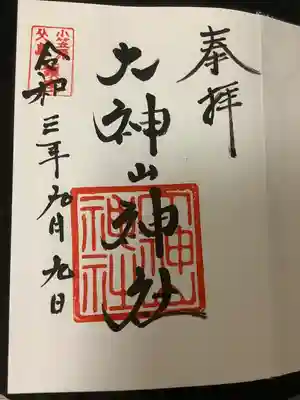 奉拝
大神山神社
令和三年九月九日
小笠原
父島